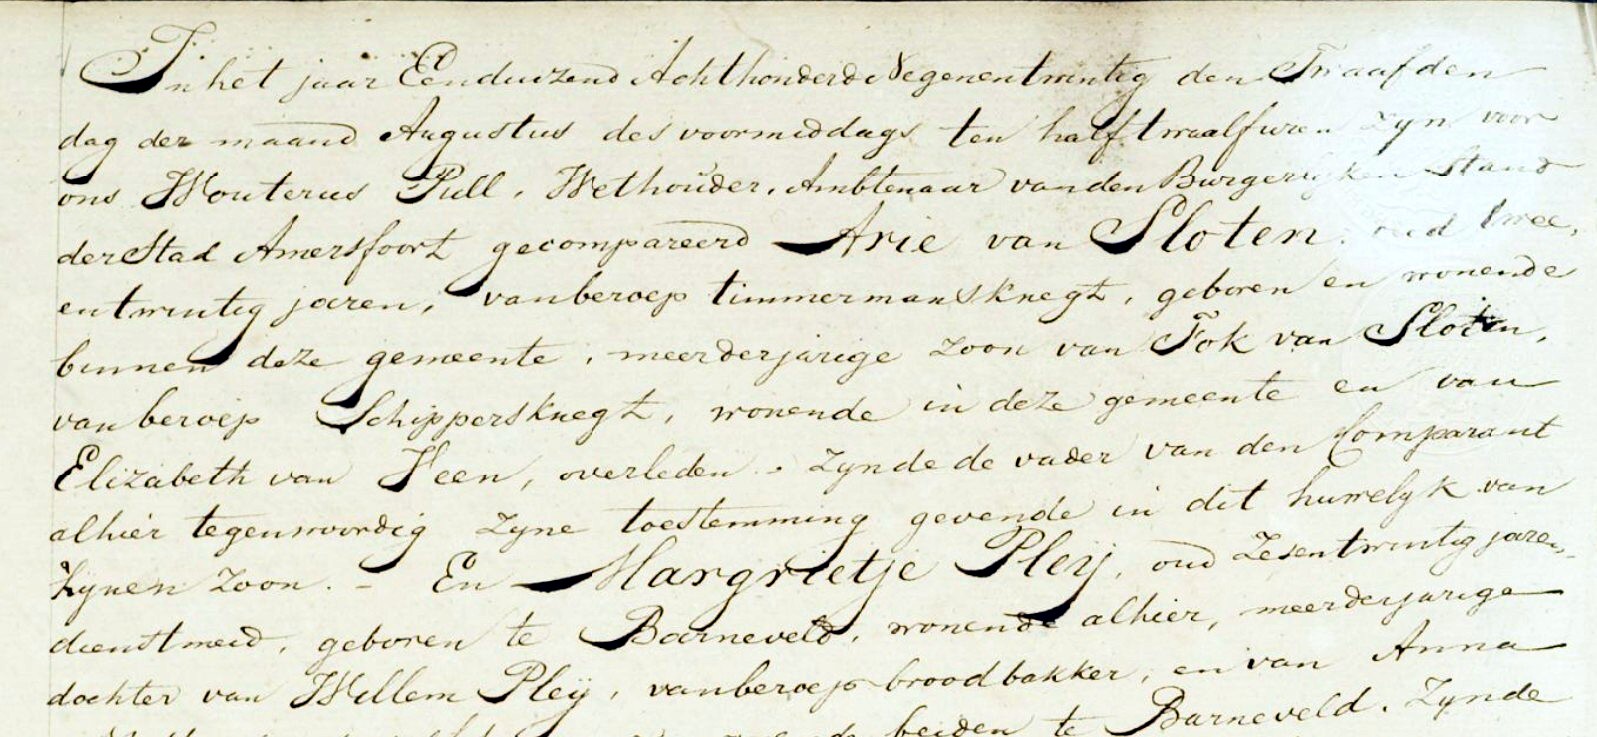 In het jaar Eenduizend Achthonderd Negenentwintig den Twaalfden
dag der maand Augustus des voormiddags ten half twaalf uren zyn voor
ons Wouterus Pull, Wethouder, Ambtenaar van den Burgerlyken Stand
der Stad Amersfoort gecompareerd Arie van Sloten, oud twee,
entwintig jaren, van beroep timmermansknegt, geboren en wonende
binnen deze gemeente, meerderjarige zoon van Fok van Sloten,
van beroep Schippersknegt, wonende in deze gemeente en van
Elizabeth van Veen, overleden. - zynde de vader van den Comparant
alhier tegenwoordig zyne toestemming gevende in dit huwelyk van
zynen zoon. - En Margrietje Pleÿ, oud zesentwintig jaren,
dienstmeid, geboren te Barneveld, wonende alhier, meerderjarige
dochter van Willem Pleÿ, van beroep broodbakker, en van Anna
beiden te Barneveld. Zynde